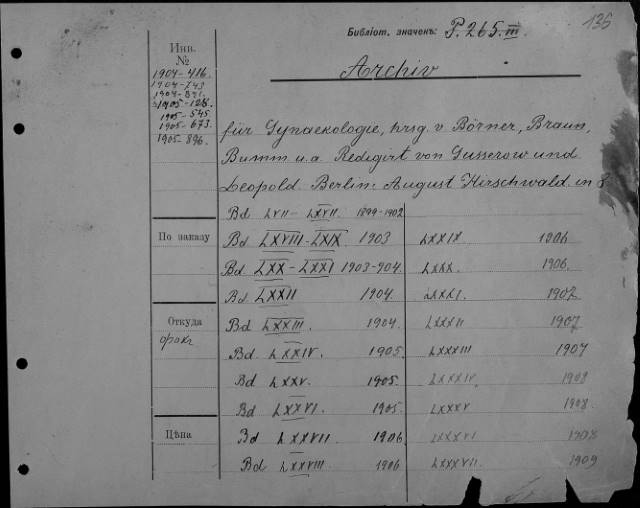 135
Библіот. значекъ: P. 265. III.
Инв.
№
1904-416.
1904-743
1904-821.
1905-128.
1905-545
1905-673.
1905-896.
Archiv
für Gynaekologie, hrsg. v. Börner, Braun,
Bumm u.a Redigirt von Gusserow und
Leopold. Berlin: August Hirschwald. in 8
Bd LVII-LXVII. 1899-1902
По заказу
Bd LXVIII-LXIX 1903 LXXIX 1906
Bd LXX-LXXI 1903-904. LXXX. 1906.
Bd LXXII 1904. LXXXI. 1907
Откуда
Bd LXXIII. 1904. LXXXII 1907
Bd LXXIV. 1905. LXXXIII 1907
Bd LXXV. 1905. LXXXIV 1908
Bd LXXVI. 1905. LXXXV 1908.
Цѣна
Bd LXXVII 1906 LXXXVI 1908
Bd LXXVIII 1906 LXXXVII. 1909